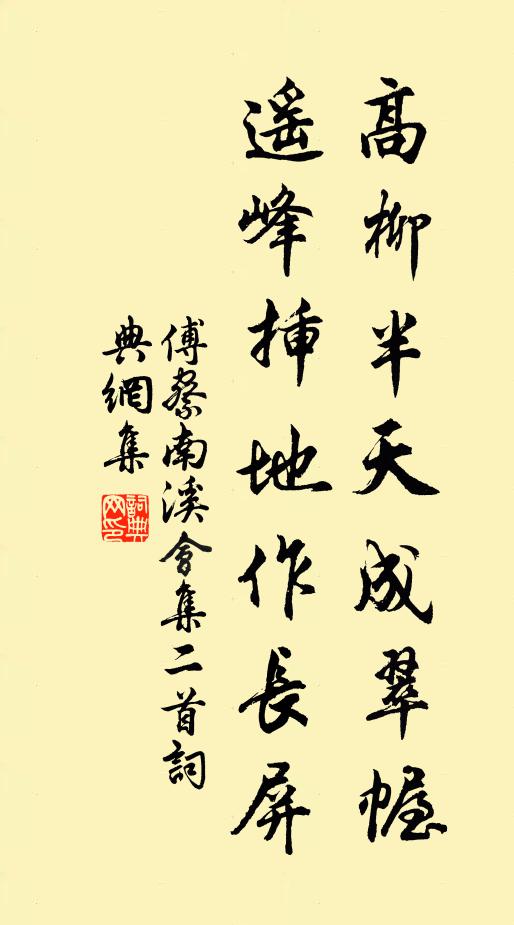 高柳半天成翠幄
遥峰挿地作長屏
傅察南溪會集二首詞
典網集
詞典
网印